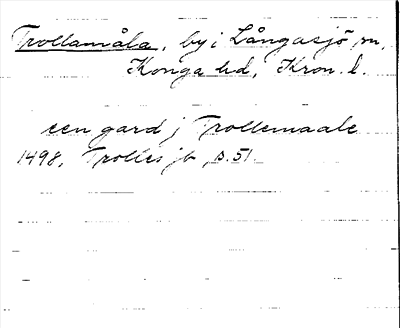 Trollamåla, by i Långasjö sn,
Konga hd, Kron. l.
een gard j Trollemaale
1498, Trolles jb, s. 51.